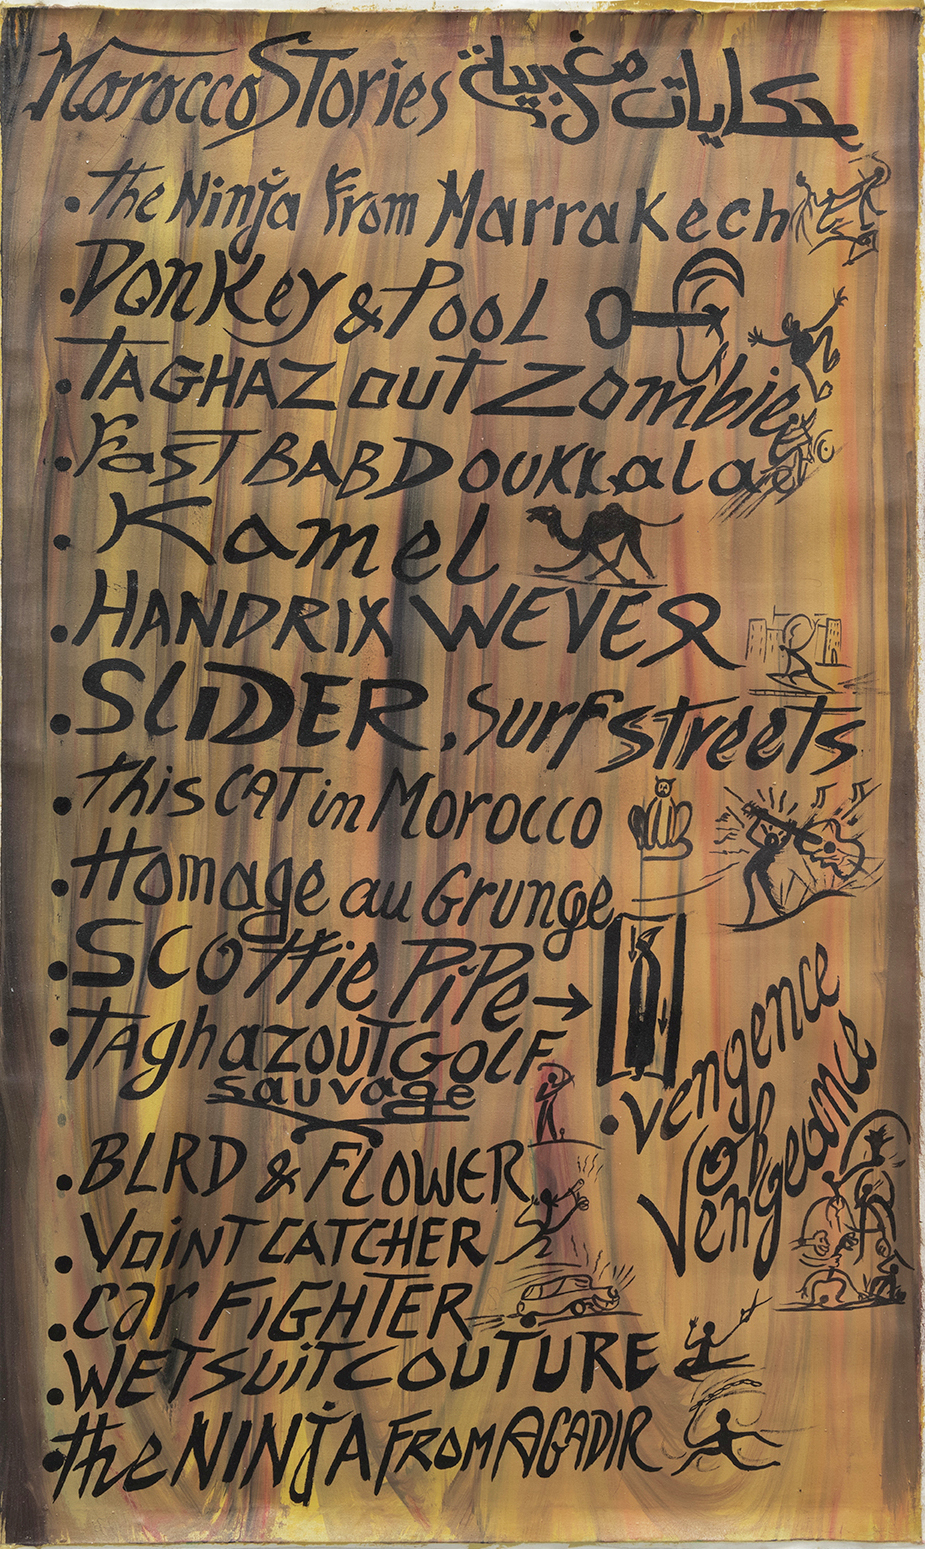 Morocco Stories حكايات مغربية
• the Ninja From Marrakech
• Donkey & Pool
• TAGHAZout Zombie
• Fast BAB Doukkala
• Kamel
• HANDRIX WEVER
• SLiDER . Surf streets
• this CAT in Morocco
• Homage au Grunge
• SCOttie PiPe →
• TAghazout GOLF
sauvage
• vengence
Vokance
Vengeance
• BLRD & FLOWER
• VOiNT CATCHER
• Car FiGHTER
• WETSuiT COUTURE
• the NINJA FROM AGADIR